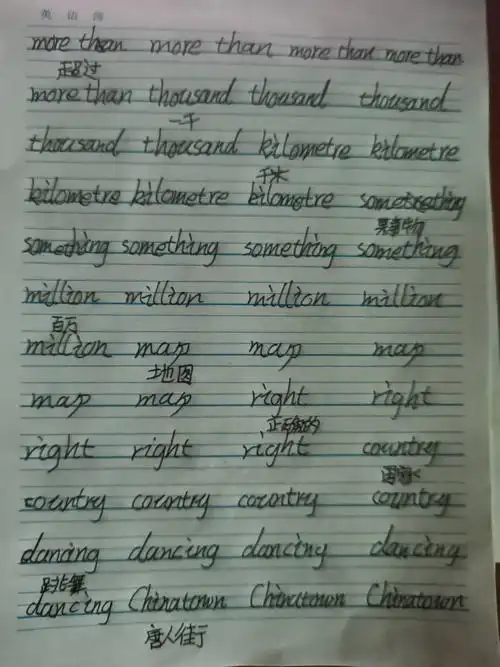 英语簿
more than more than more than more than
超过
more than thousand thousand thousand
一千
thousand thousand kilometre kilometre
千米
kilometre kilometre kilometre something
某事物
something something something something
million million million million
百万
million map map map
地图
map map right right
正确的
right right right country
国家
country country country country
dancing dancing dancing dancing
跳舞
dancing Chinatown Chinatown Chinatown
唐人街